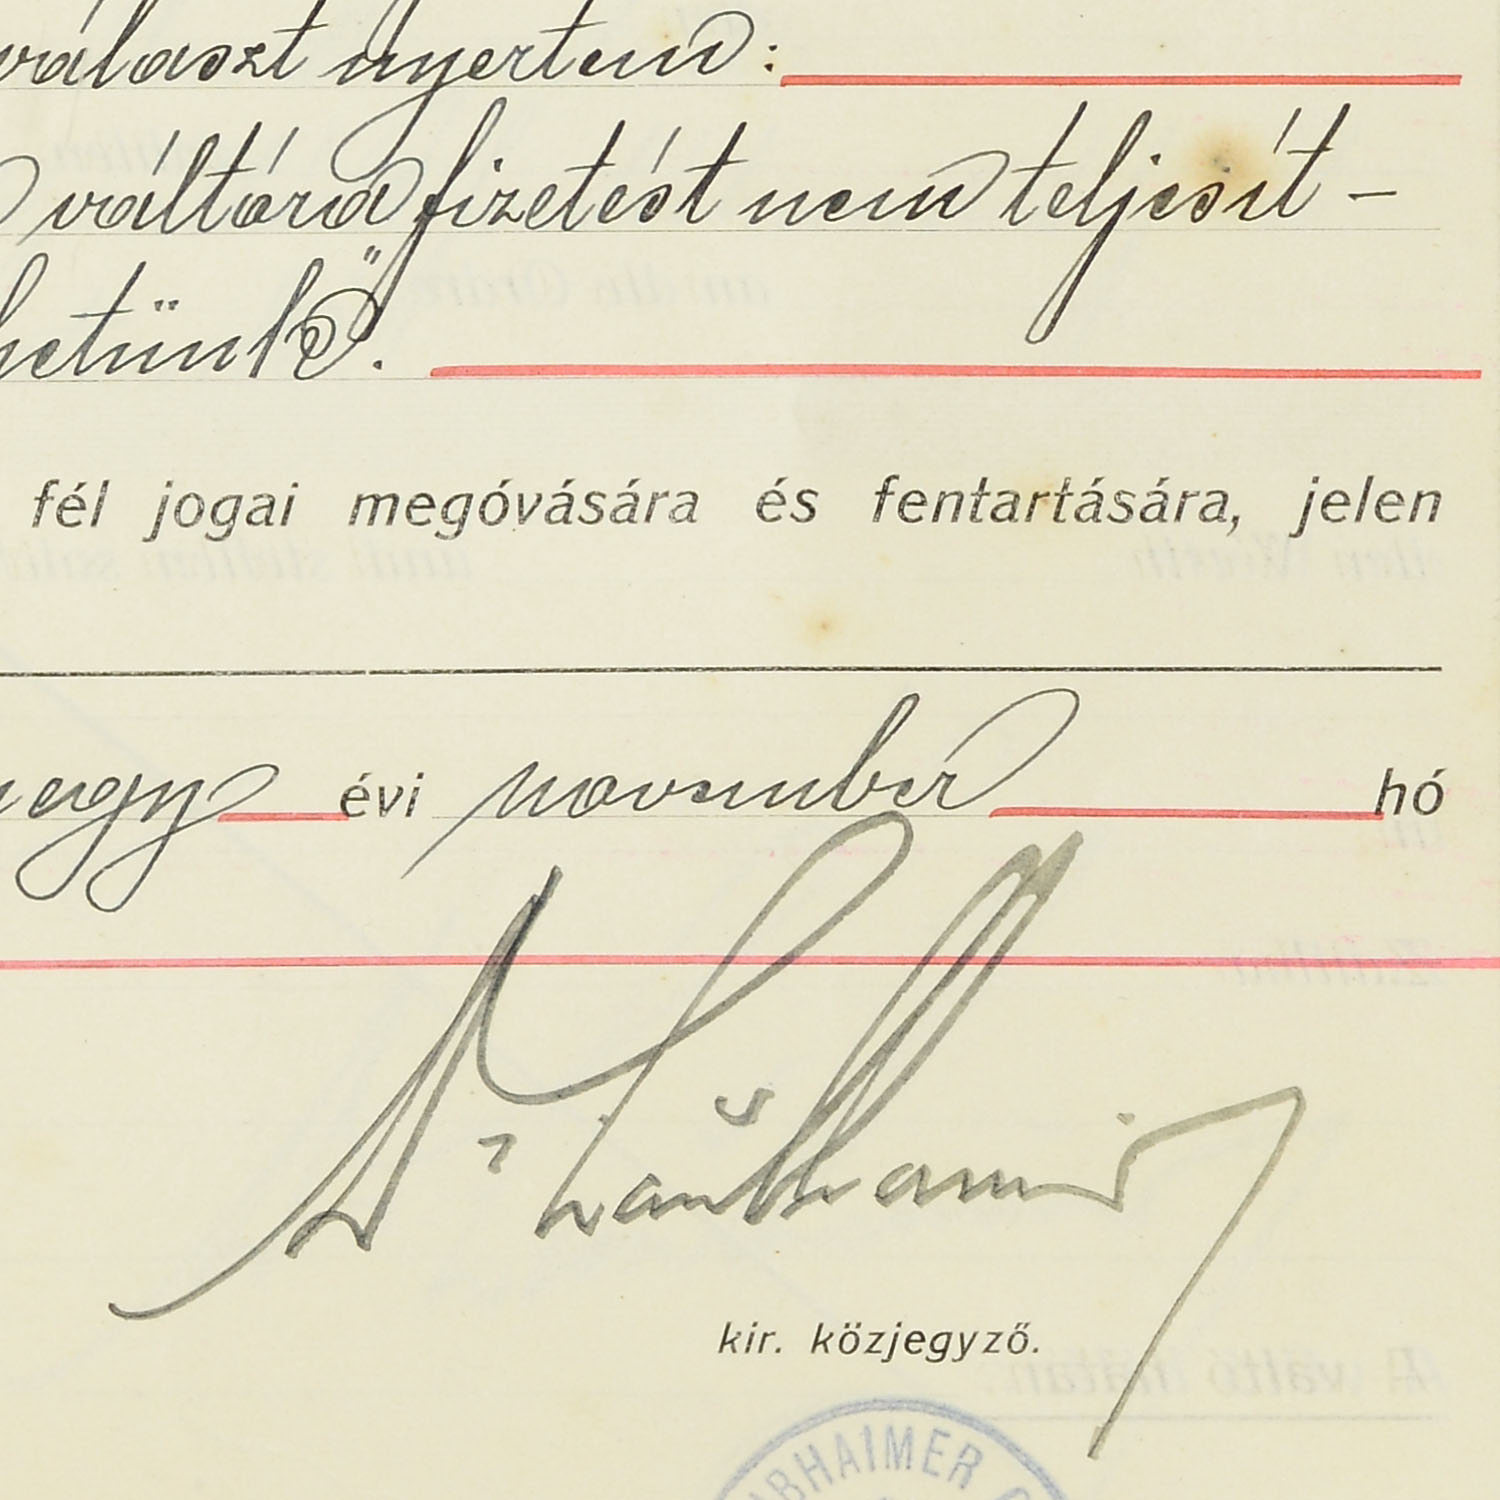 választ nyertem:
váltóra fizetést nem teljesít -
hetünk".
fél jogai megóvására és fentartására, jelen
évi november hó
Dr
kir. közjegyző.